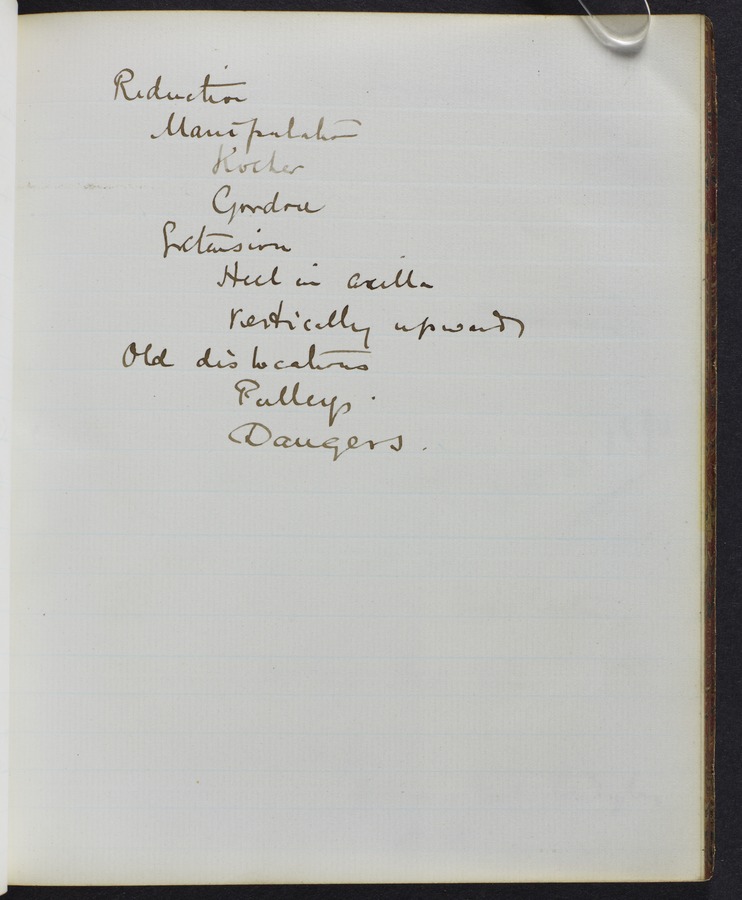 Reduction
Manipulation
Kocher
Gordon
Extension
Heel in axilla
Vertically upwards
Old dislocations
Pulleys.
Dangers.